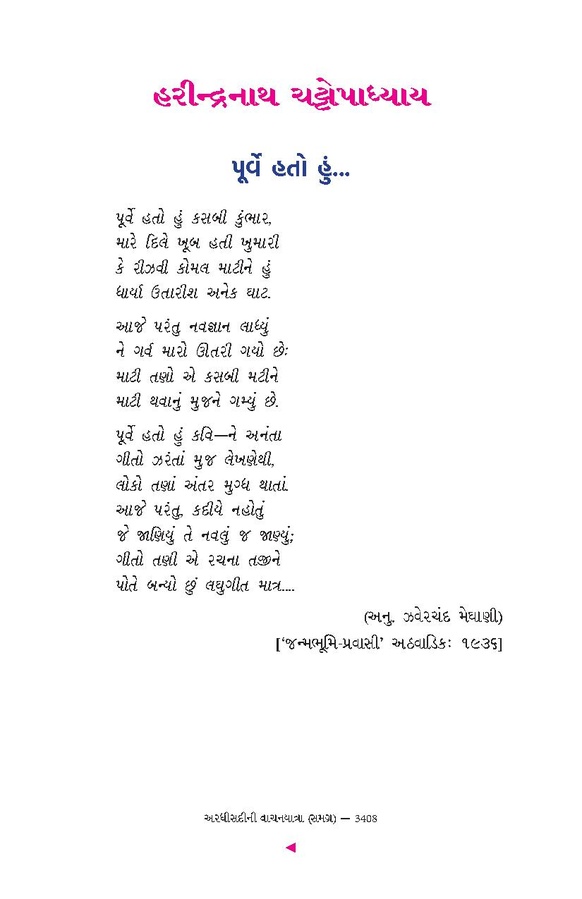 હરીન્દ્રનાથ ચટ્ટોપાધ્યાય
પૂર્વે હતો હું...
પૂર્વે હતો હું કસબી કુંભાર,
મારે દિલે ખૂબ હતી ખુમારી
કે રીઝવી કોમલ માટીને હું
ધાર્યા ઉતારીશ અનેક ઘાટ.
આજે પરંતુ નવજ્ઞાન લાધ્યું
ને ગર્વ મારો ઊતરી ગયો છેઃ
માટી તણો એ કસબી મટીને
માટી થવાનું મુજને ગમ્યું છે.
પૂર્વે હતો હું કવિ—ને અનંતા
ગીતો ઝરંતાં મુજ લેખણેથી,
લોકો તણાં અંતર મુગ્ધ થાતાં.
આજે પરંતુ, કદીયે નહોતું
જે જાણિયું તે નવલું જ જાણ્યું;
ગીતો તણી એ રચના તજીને
પોતે બન્યો છું લઘુગીત માત્ર....
(અનુ. ઝવેરચંદ મેઘાણી)
[‘જન્મભૂમિ-પ્રવાસી’ અઠવાડિકઃ ૧૯૩૬]
અરધીસદીની વાચનયાત્રા (સમગ્ર) — 3408